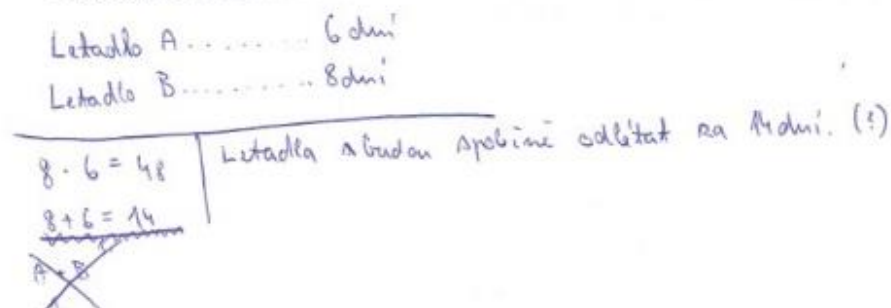 Letadlo A .......... 6 dní
Letadlo B .......... 8 dní
8 · 6 = 48
8 + 6 = 14
A + B
Letadla budou společně odlétat za 14 dní. (?)